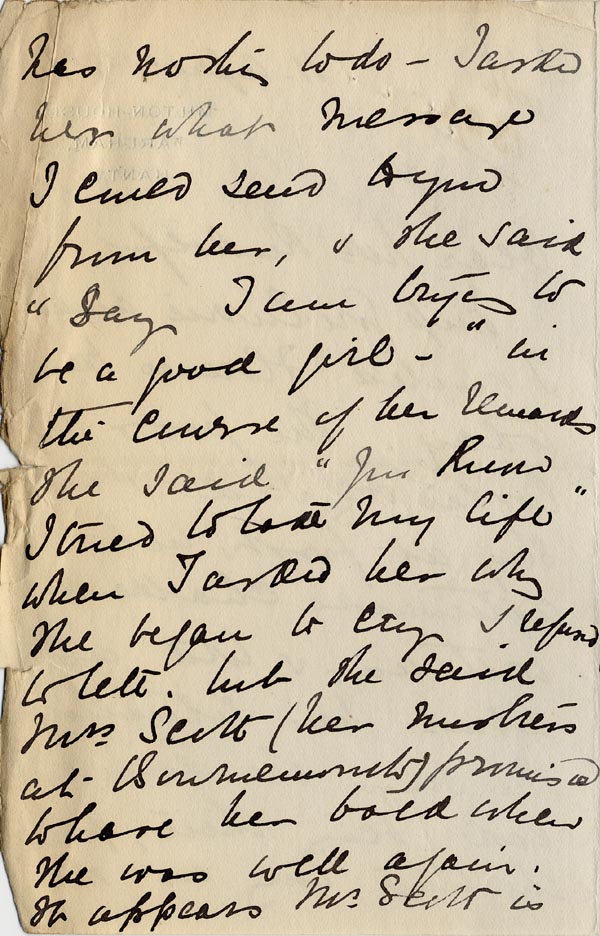 has nothing to do – I asked
her what message
I could send to you
from her, & she said
"Say I am trying to
be a good girl –" in
the course of her remarks
she said "you know
I tried to take my life"
when I asked her why
she began to cry & refused
to tell. but she said
Mrs Scott (her mistress
at Bournemouth) promised
to have her back when
she was well again.
It appears Mrs Scott is